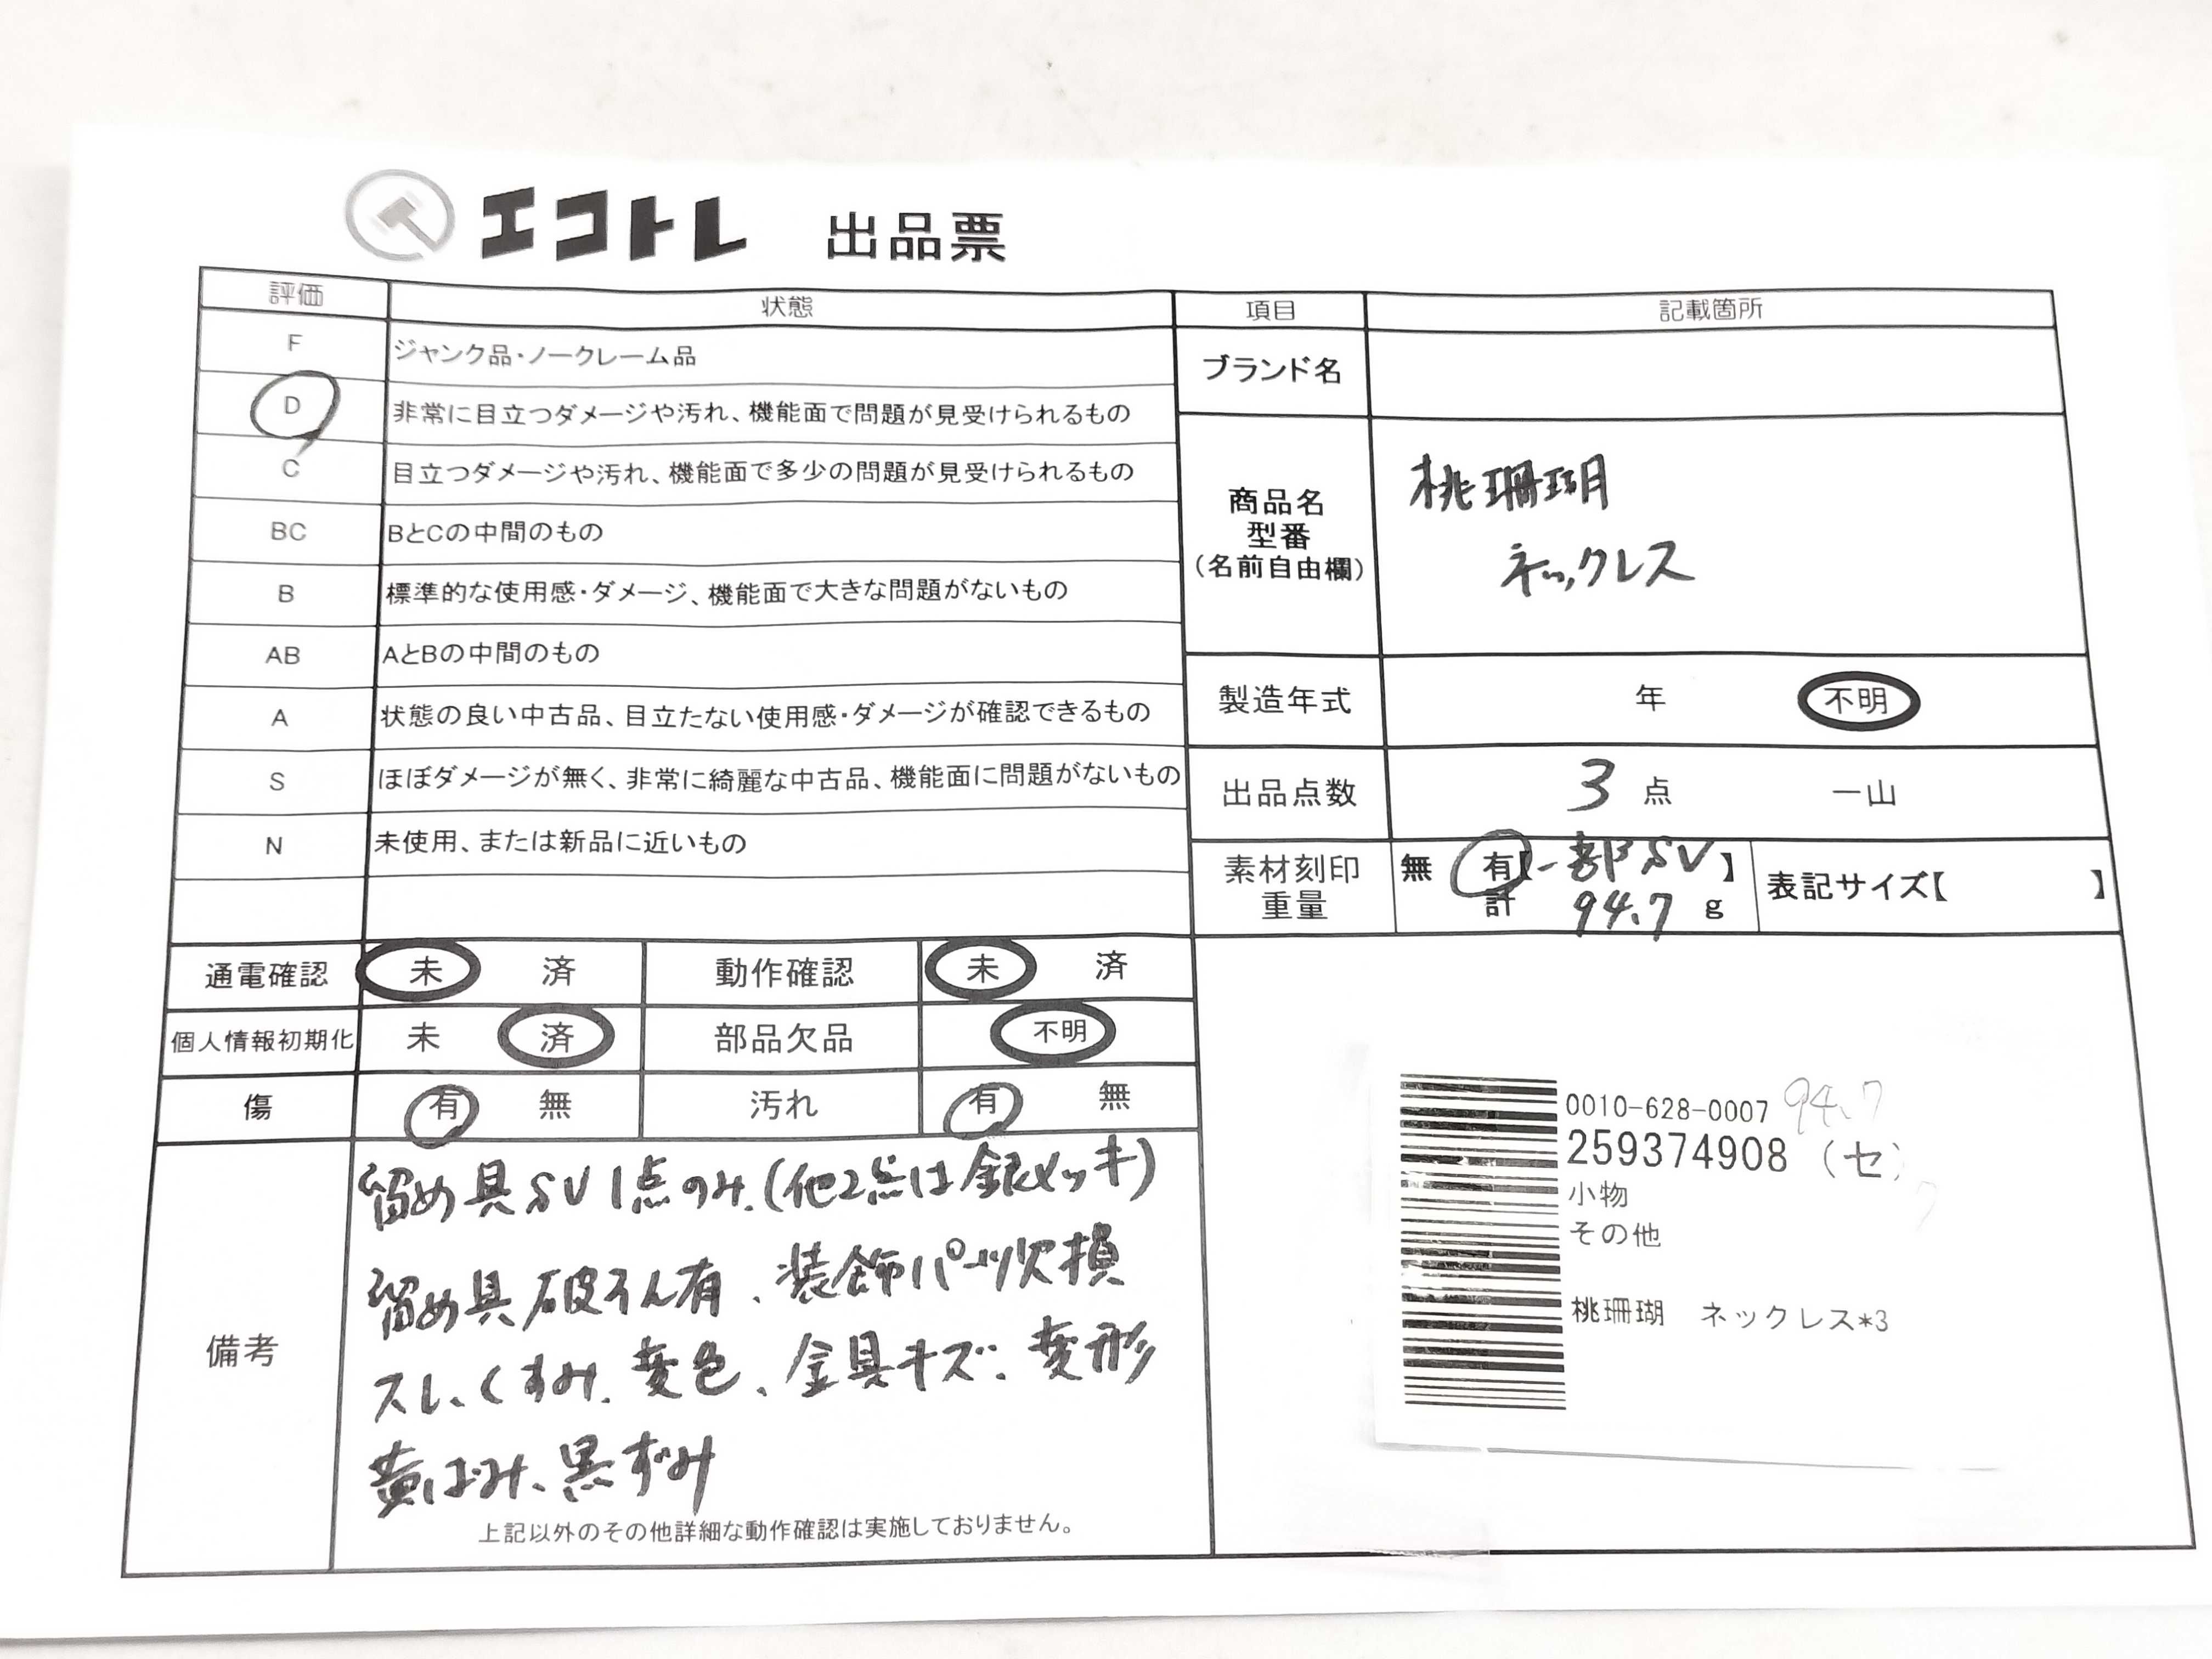 エコトレ 出品票
評価 状態
F ジャンク品・ノークレーム品
D 非常に目立つダメージや汚れ、機能面で問題が見受けられるもの
C 目立つダメージや汚れ、機能面で多少の問題が見受けられるもの
BC BとCの中間のもの
B 標準的な使用感・ダメージ、機能面で大きな問題がないもの
AB AとBの中間のもの
A 状態の良い中古品、目立たない使用感・ダメージが確認できるもの
S ほぼダメージが無く、非常に綺麗な中古品、機能面に問題がないもの
N 未使用、または新品に近いもの
項目 記載箇所
ブランド名
商品名
型番
(名前自由欄)
桃珊瑚
ネックレス
製造年式 年 不明
出品点数 3 点 一山
素材刻印
重量
無 有【一部SV】
計 94.7 g
表記サイズ【 】
通電確認 未 済 動作確認 未 済
個人情報初期化 未 済 部品欠品 不明
傷 有 無 汚れ 有 無
備考
留め具SV1点のみ.(他2点は銀メッキ)
留め具破そん有、装飾パーツ欠損
スレ、くすみ、変色、金具キズ、変形
黄ばみ、黒ずみ
上記以外のその他詳細な動作確認は実施しておりません。
0010-628-0007 94.7
259374908 (セ)
小物
その他
桃珊瑚 ネックレス*3